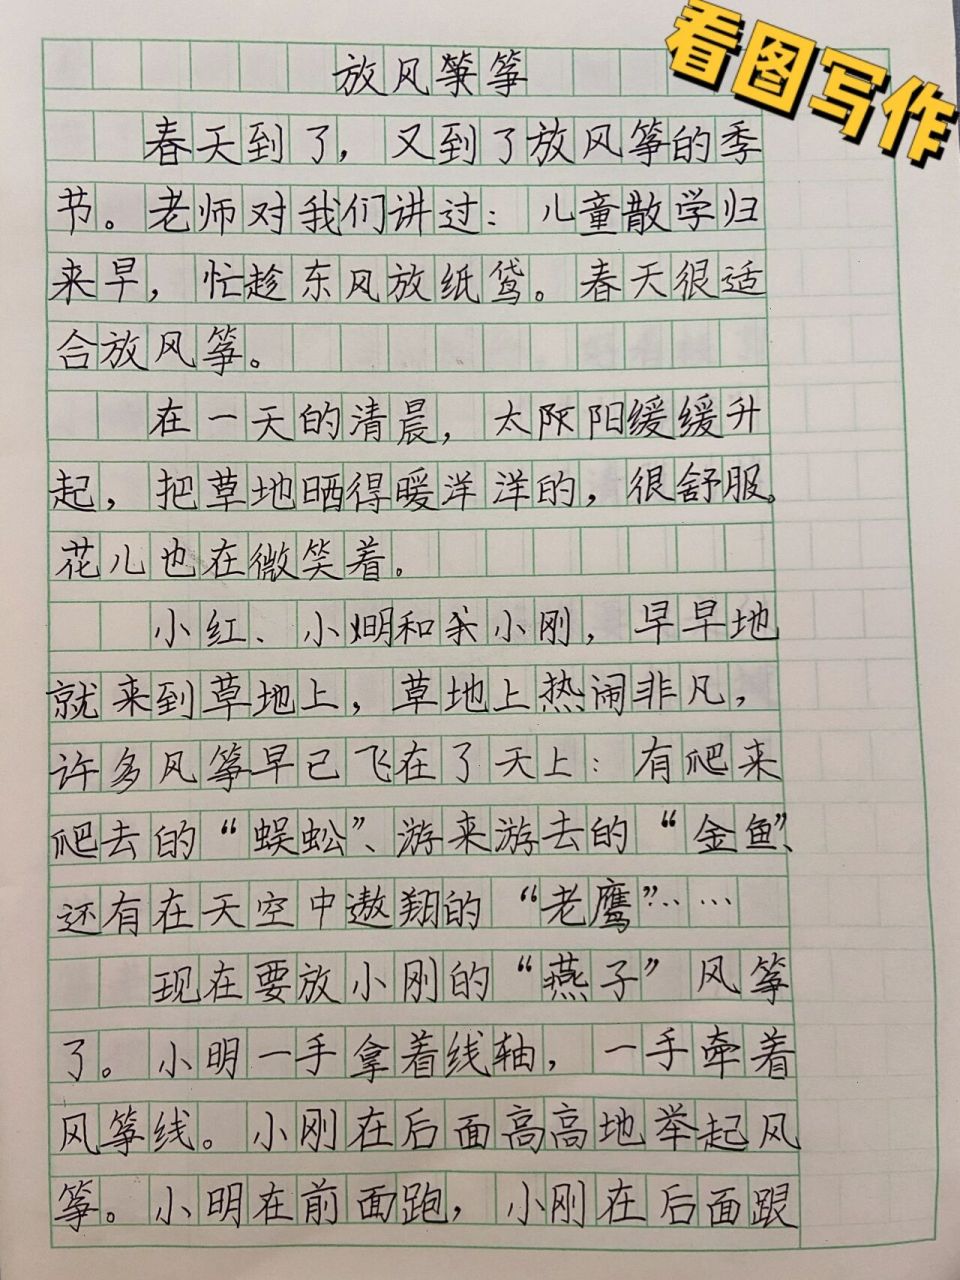 看图写作
放风筝筝
春天到了，又到了放风筝的季
节。老师对我们讲过：儿童散学归
来早，忙趁东风放纸鸢。春天很适
合放风筝。
在一天的清晨，太阳缓缓升
起，把草地晒得暖洋洋的，很舒服。
花儿也在微笑着。
小红、小明和小刚，早早地
就来到草地上，草地上热闹非凡，
许多风筝早已飞在了天上：有爬来
爬去的“蜈蚣”、游来游去的“金鱼”、
还有在天空中遨翔的“老鹰”……
现在要放小刚的“燕子”风筝
了。小明一手拿着线轴，一手牵着
风筝线。小刚在后面高高地举起风
筝。小明在前面跑，小刚在后面跟